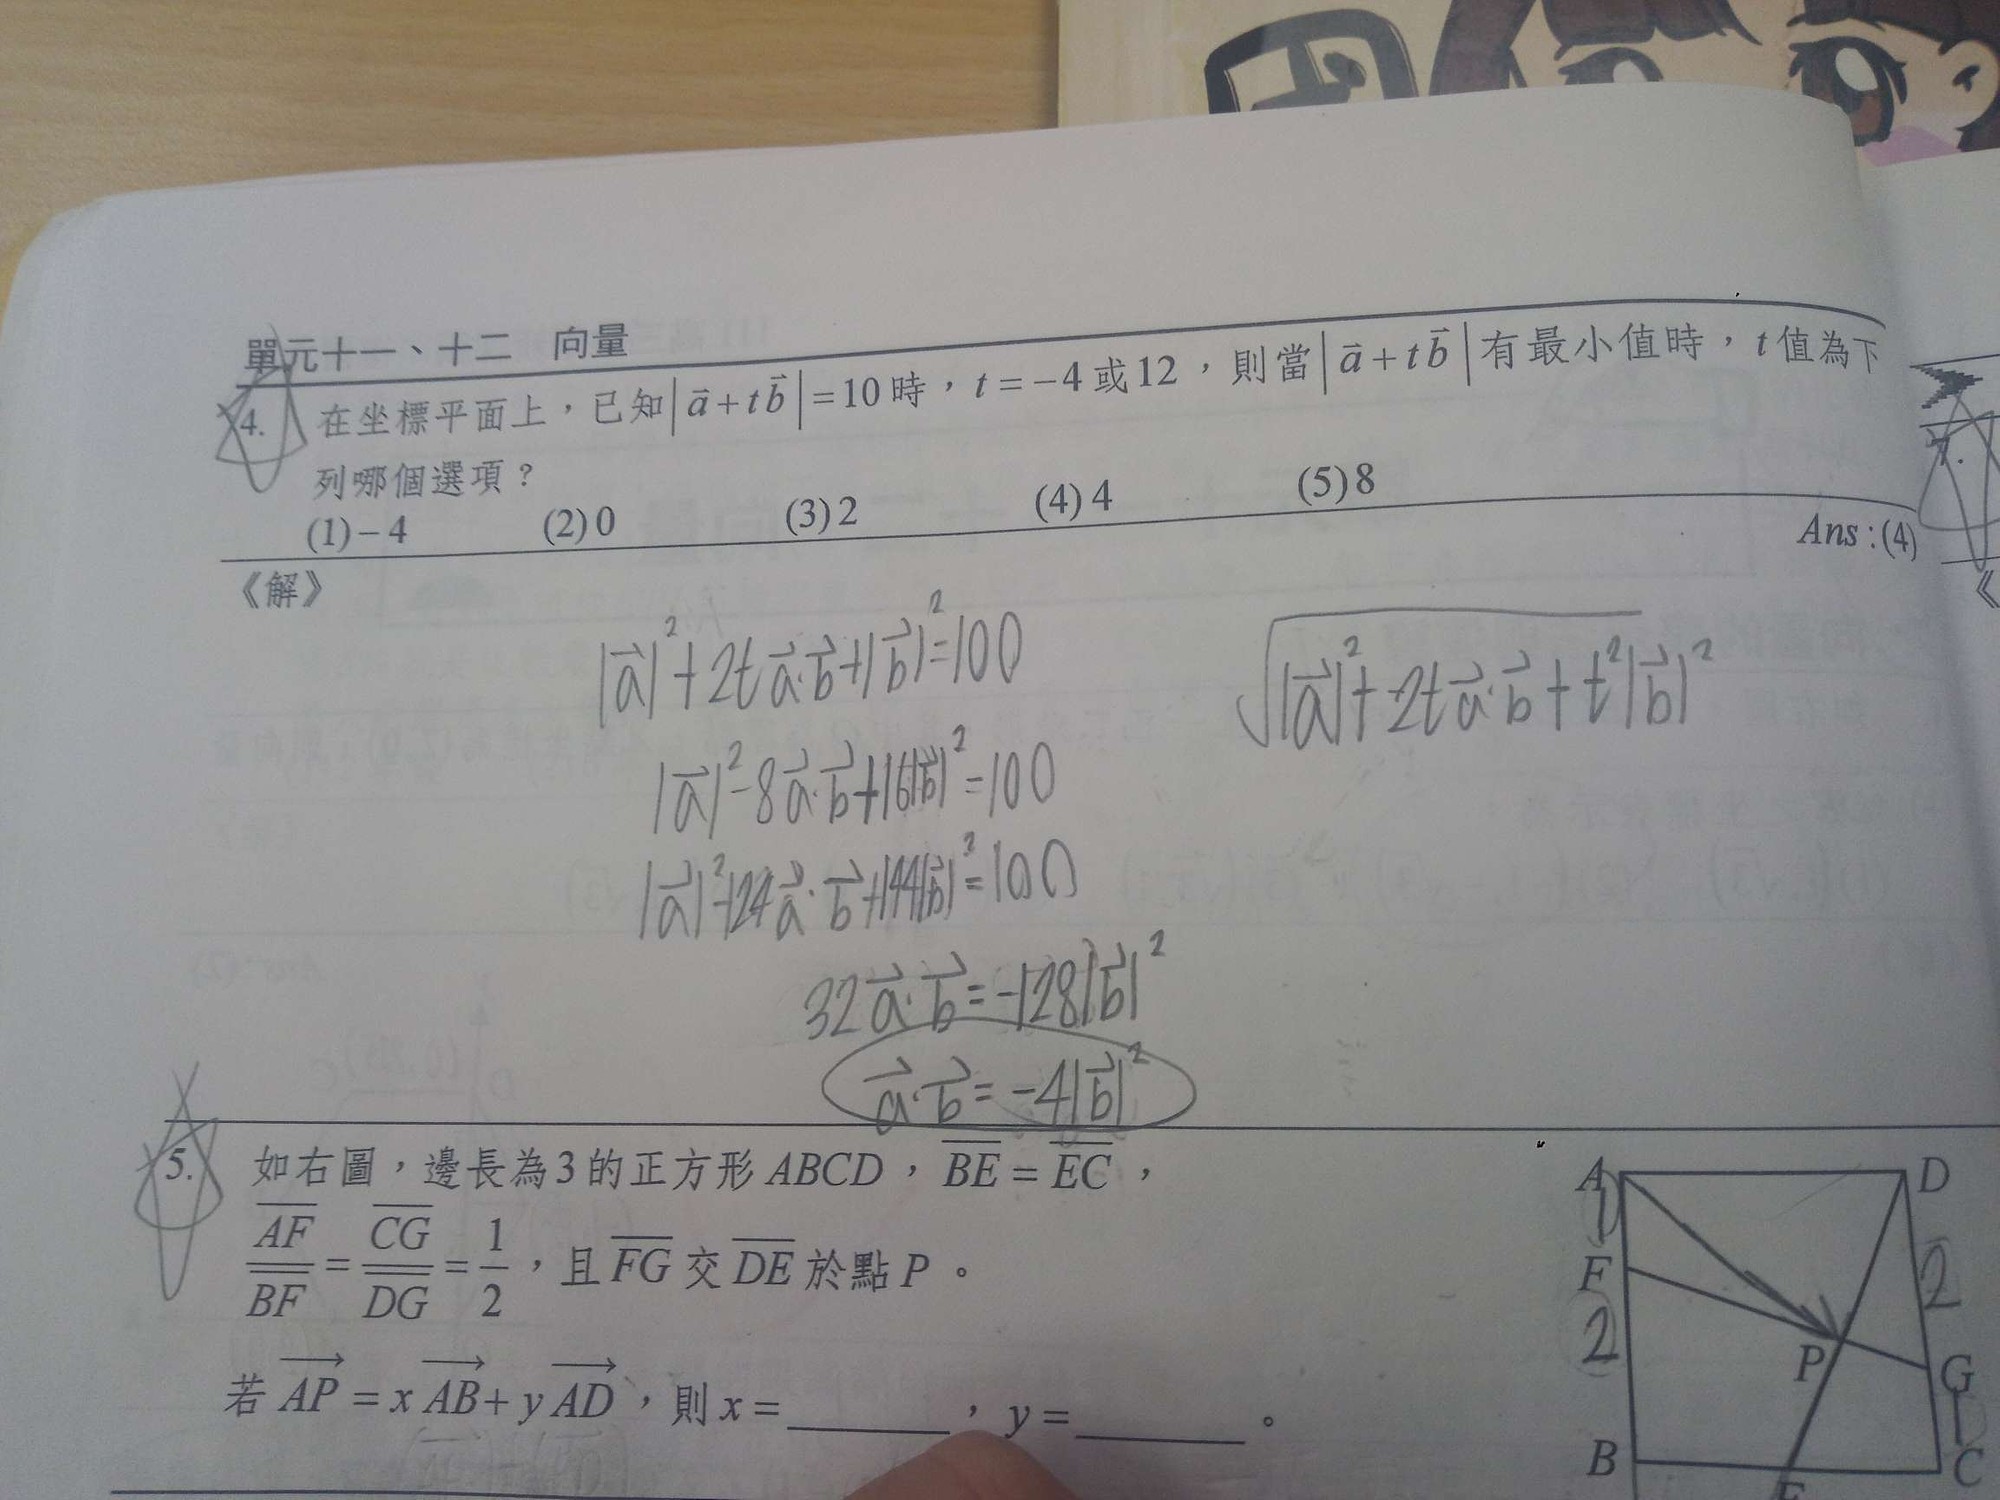 單元十一、十二　向量
4. 在坐標平面上，已知|a⃗+tb⃗|=10時，t=−4或12，則當|a⃗+tb⃗|有最小值時，t值為下
列哪個選項？
(1)−4　(2)0　(3)2　(4)4　(5)8
Ans:(4)
《解》
|a⃗|²+2ta⃗·b⃗+|b⃗|²=100
√|a⃗|²+2ta⃗·b⃗+t²|b⃗|²
|a⃗|²−8a⃗·b⃗+16|b⃗|²=100
|a⃗|²+24a⃗·b⃗+144|b⃗|²=100
32a⃗·b⃗=−128|b⃗|²
a⃗·b⃗=−4|b⃗|²
5. 如右圖，邊長為3的正方形ABCD，BE=EC，
AF/BF=CG/DG=1/2，且FG交DE於點P。
若AP=xAB+yAD，則x=______，y=______。
A D
1
F 2
2
P G
1
B E C
7.
《